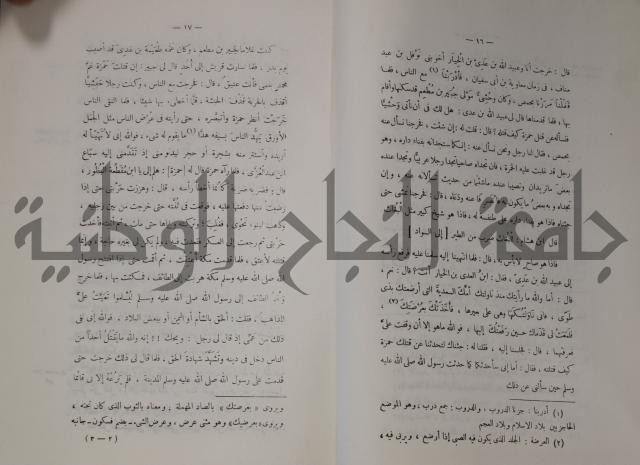 — ١٦ —
قال : خرجت أنا وعبيد الله بن عدي بن الخيار أخو بني نوفل بن عبد
مناف ، في زمان معاوية بن أبي سفيان ، فأدربنا (١) مع الناس ، فلما
قفلنا مررنا بحمص ، وكان وحشي مولى جبير بن مطعم قد سكنها وأقام
بها ، فلما قدمناها قال لي عبيد الله بن عدى : هل لك في أن نأتي وحشيا
فنسأله عن قتل حمزة كيف قتله ؟ قال : قلت له : إن شئت ، فخرجنا نسأل عنه
بحمص ، فقال لنا رجل ونحن نسأل عنه : إنكما ستجدانه بفناء داره ، وهو
رجل قد غلبت عليه الخمر ، فان تجداه صاحيا تجدا رجلا عربيا وتجدا عنده
بعض ما تريدان وتصيبا عنده ماشئتما من حديث تسألانه عنه ، وإن
تجداه و به بعض ما يكون به فانصرفا عنه ودعاه ، قال : فخرجنا نمشي حتى
جئناه فاذا هو بفناء داره على طنفسة له ، فاذا هو شيخ كبير مثل البغاث
قال ابن هشام : البغاث ضرب من الطير إلى السواد
فاذا هو صاح لا بأس به ، قال : فلما انتهينا إليه سلمنا عليه فرفع رأسه
إلى عبيد الله بن عدي ، فقال : ابن لعدى بن الخيار أنت ؟ قال : نعم ،
قال : أما والله ما رأيتك منذ ناولتك أمك السعدية التي أرضعتك بذي
طوى ، فاني ناولتكها وهي على بعيرها ، فأخذتك بعرضتيك (٢) ،
فلمعت لي قدماك حين رفعتك إليها ، فو الله ماهو إلا أن وقفت علي
فعرفتهما ، قال : فجلسنا إليه ، فقلنا له : جئناك لتحدثنا عن قتلك حمزة
كيف قتلته ، فقال : أما إني سأحدثكما كما حدثت رسول الله صلى الله عليه
وسلم حين سألني عن ذلك
(١) أدربنا : جزنا الدروب ، والدروب : جمع درب ، وهو الموضع
الحاجز بين بلاد الاسلام وبلاد العجم
(٢) العرضة : الجلد الذي يكون فيه الصبي إذا أرضع ، ويربى فيه ،
— ١٧ —
كنت غلاما لجبير بن مطعم ، وكان عمه طعيمة بن عدى قد أصيب
يوم بدر ، فلما سارت قريش إلى أحد قال لي جبير : إن قتلت حمزة عم
محمد بعمي فأنت عتيق ، قال : فخرجت مع الناس ، وكنت رجلا حبشيا
أقذف بالحربة قذف الحبشة ، قلما أخطئ بها شيئا ، فلما التقى الناس
خرجت أنظر حمزة وأتبصره ، حتى رأيته في عرض الناس مثل الجمل
الأورق يهد الناس بسيفه هدا ما يقوم له شيء ، فو الله إني لأتهيأ له
أريده وأستتر منه بشجرة أو حجر ليدنو مني إذ تقدمني إليه سباع
ابن عبد العزى ، فلما رآه حمزة قال له : هلم إلي يا ابن مقطعة البظور ،
قال : فضربه ضربة كأنما أخطأ رأسه ، قال : وهززت حربتي حتى إذا
رضيت منها دفعتها عليه ، فوقعت في ثنته حتى خرجت من بين رجليه ،
وذهب لينوء نحوي ، فغلب ، وتركته وإياها حتى مات ثم أتيته فأخذت
حربتي ثم رجعت إلى العسكر فقعدت فيه ولم يكن لي بغيره حاجة ، وإنما
قتلته لأعتق ، فلما قدمت مكة أعتقت ، ثم أقمت حتى إذا افتتح رسول
الله صلى الله عليه وسلم مكة هربت إلى الطائف ، فمكثت بها ، فلما خرج
وفد الطائف إلى رسول الله صلى الله عليه وسلم ليسلموا تعيت علي
المذاهب ، فقلت : ألحق بالشأم أو اليمن أو ببعض البلاد ، فو الله إني لفي
ذلك من همي إذ قال لي رجل : ويحك !! إنه والله مايقتل أحدا من
الناس دخل في دينه وتشهد شهادة الحق ، فلما قال لي ذلك خرجت حتى
قدمت على رسول الله صلى الله عليه وسلم المدينة ، فلم يرعه إلا بي قائما
ويروى « بعرصتك » بالصاد المهملة ، ومعناه بالثوب الذى كان تحته ،
ويروى « بعرضيك » وهو مثنى عرض ، وعرض الشيء ـ بضم فسكون ـ جانبه
(٢ — ٣)
جامعة النجاح الوطنية